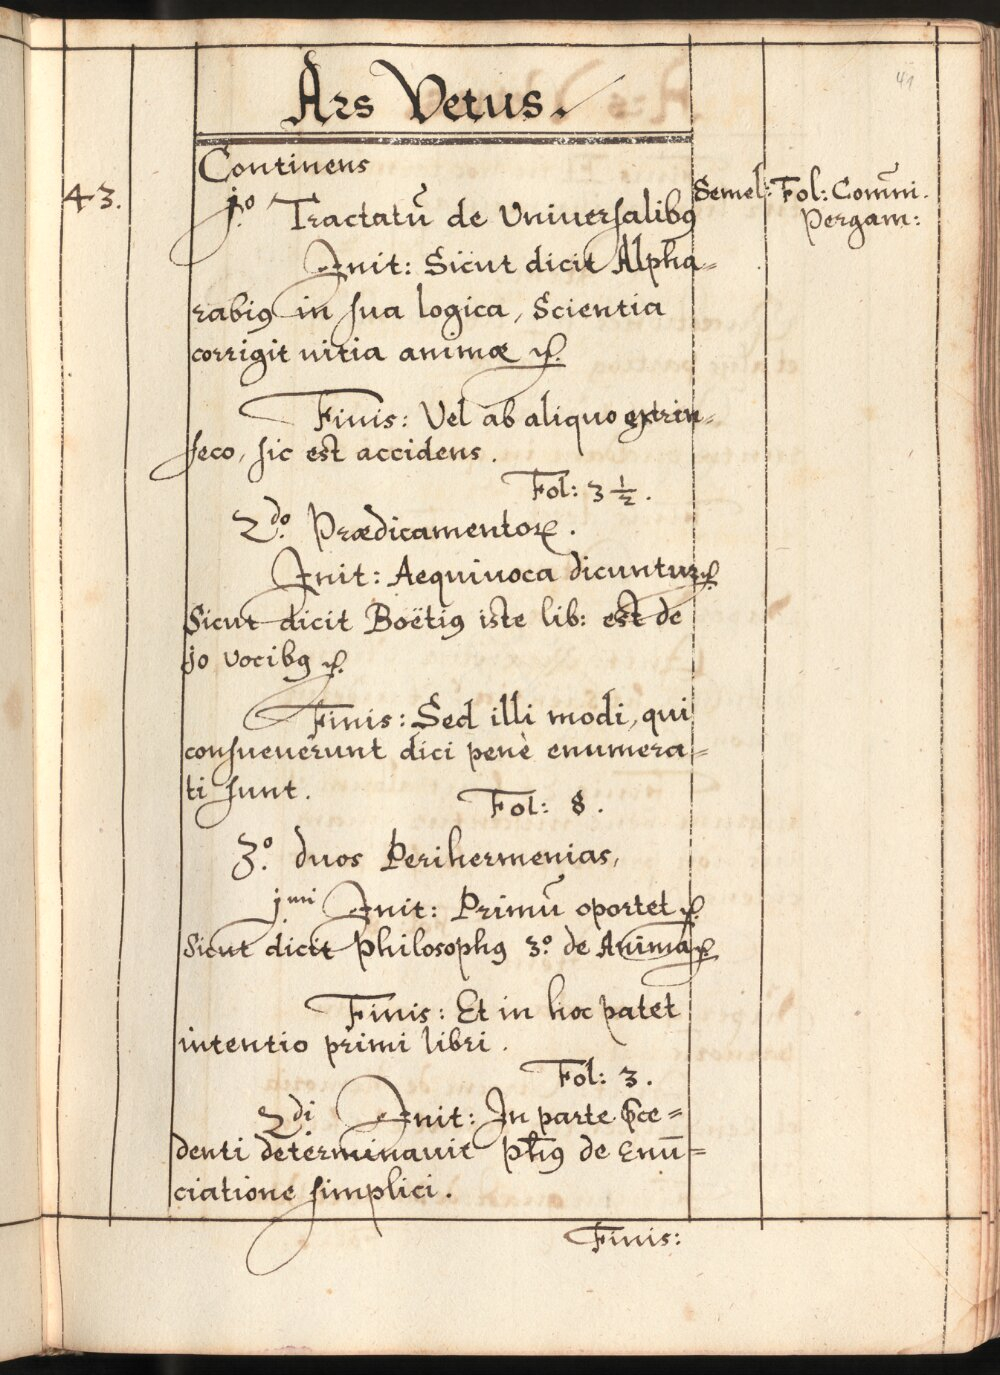 41
Ars Vetus.
Continens
43.
Semel: Fol: Com̃uni.
Pergam:
j.º Tractatũ de Universalibꝰ
Init: Sicut dicit Alpha-
rabiꝰ in sua logica, Scientia
corrigit vitia animæ ꝛc.
Finis: Vel ab aliquo extrin-
seco, sic est accidens.
Fol: 3 1/2.
2.do Prædicamentoꝝ.
Init: Aequivoca dicuntur ꝛc.
Sicut dicit Boëtiꝰ iste lib: est de
jo vocibꝰ ꝛc.
Finis: Sed illi modi, qui
consueverunt dici penè enumera-
ti sunt.
Fol: 8.
3.º duos Perihermenias,
jmi Init: Primũ oportet ꝛc.
Sicut dicit Philosophꝰ 3.º de Anima ꝛc.
Finis: Et in hoc patet
intentio primi libri.
Fol: 3.
2di Init: In parte p̃ce-
denti determinavit Ph̃ꝰ de Enũ-
ciatione simplici.
Finis: